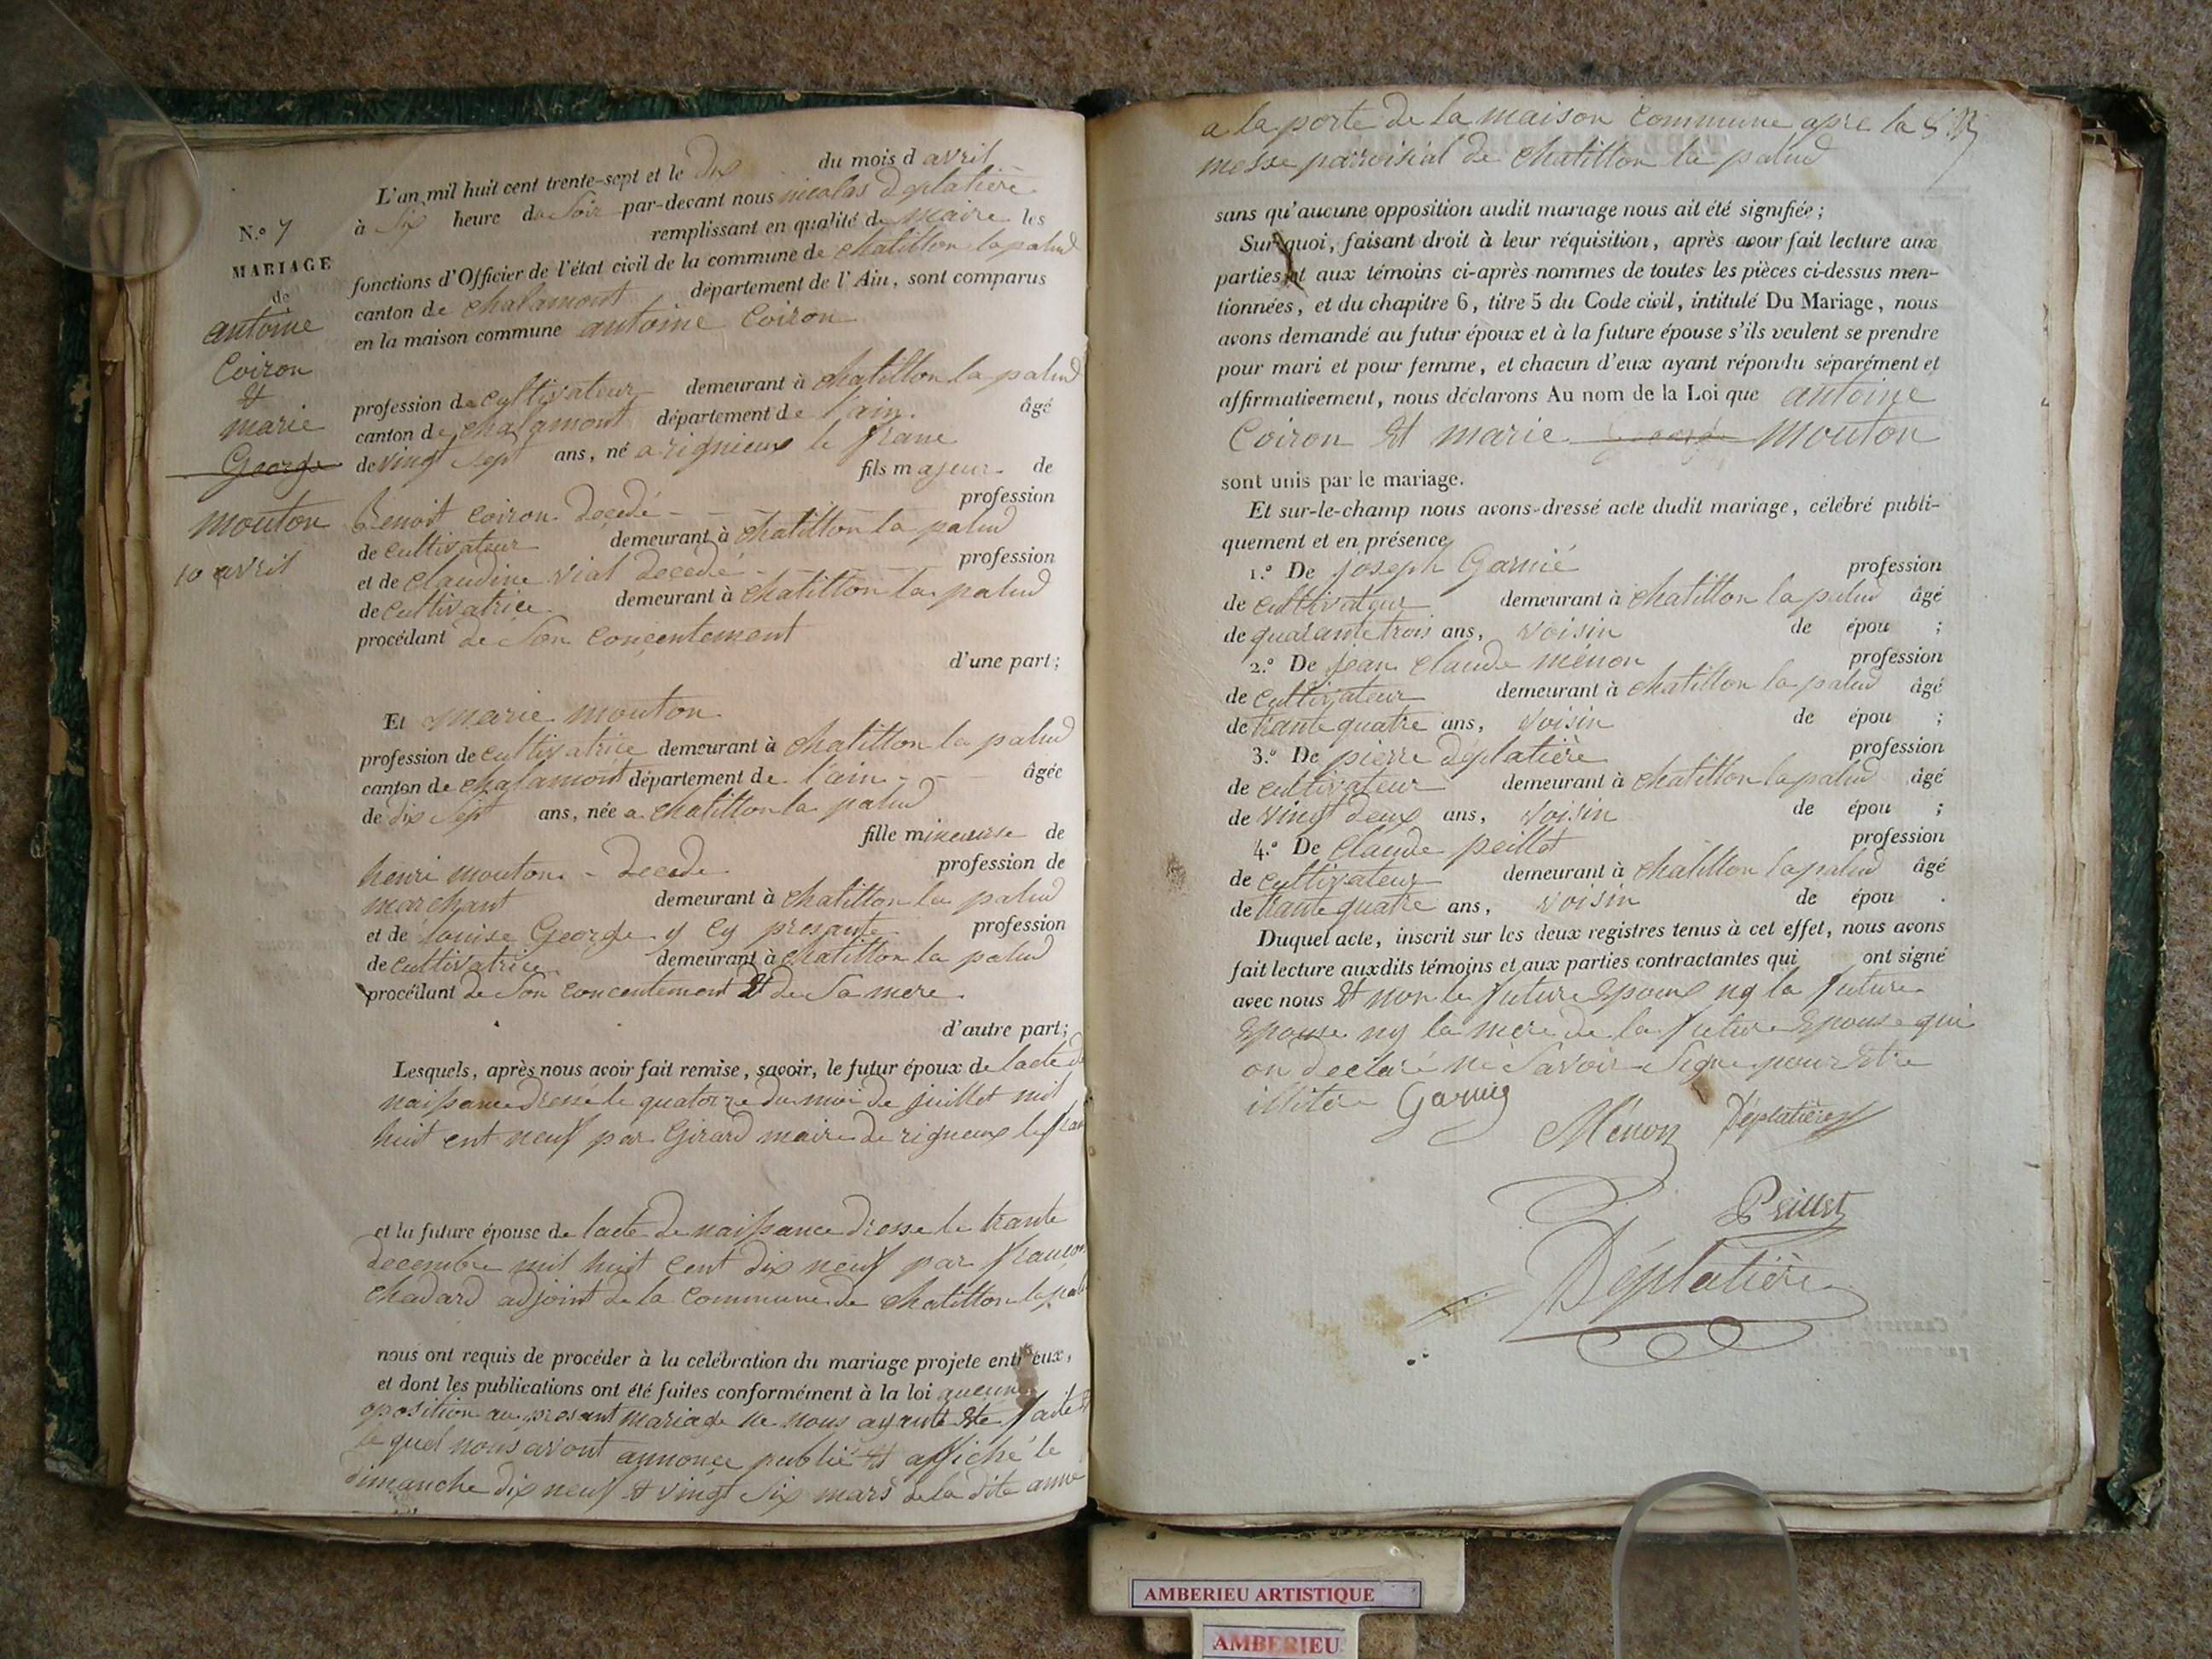 N.o 7
MARIAGE
de
antoine
Coiron
&
marie
George
mouton
10 avril
L'an mil huit cent trente-sept et le dix du mois d avril
à six heure du soir par-devant nous nicolas deplatière
remplissant en qualité de maire les
fonctions d'Officier de l'état civil de la commune de chatillon la palud
canton de chalamont département de l'Ain, sont comparus
en la maison commune antoine Coiron
profession de cultivateur demeurant à chatillon la palud
canton de chalamont département de l'ain. âgé
de vingt sept ans, né a rignieux le franc
fils majeur de
Benoit coiron decedé profession
de cultivateur demeurant à chatillon la palud
et de claudine vial decedé profession
de cultivatrice demeurant à chatillon la palud
procédant de son concentement
d'une part;
Et marie mouton
profession de cultivatrice demeurant à chatillon la palud
canton de chalamont département de l'ain âgée
de dix sept ans, née a chatillon la palud
fille mineurse de
henri mouton - decede profession de
marchant demeurant à chatillon la palud
et de louise George y cy presante profession
de cultivatrice demeurant à chatillon la palud
procédant de son concentement & de sa mere
d'autre part;
Lesquels, après nous avoir fait remise, savoir, le futur époux de lacte de
naissance dressé le quatorze du moi de juillet mil
huit cent neuf par Girard maire de rigneux le fran
et la future épouse de lacte de naissance dresse le trante
decembre mil huit cent dix neuf par francois
chadard adjoint de la commune de chatillon la palu
nous ont requis de procéder à la célébration du mariage projeté entr'eux,
et dont les publications ont été faites conformément à la loi aucune
oposition au presant mariage ne nous ayante eté faite &
le quel nous avont annonce publié & affiché le
dimanche dix neuf & vingt six mars de la dite anne
a la porte de la maison commune apre la
messe parroisial de chatillon la palud
sans qu'aucune opposition audit mariage nous ait été signifiée;
Sur quoi, faisant droit à leur réquisition, après avoir fait lecture aux
parties et aux témoins ci-après nommés de toutes les pièces ci-dessus men-
tionnées, et du chapitre 6, titre 5 du Code civil, intitulé Du Mariage, nous
avons demandé au futur époux et à la future épouse s'ils veulent se prendre
pour mari et pour femme, et chacun d'eux ayant répondu séparément et
affirmativement, nous déclarons Au nom de la Loi que antoine
Coiron & marie George mouton
sont unis par le mariage.
Et sur-le-champ nous avons dressé acte dudit mariage, célébré publi-
quement et en présence
1.o De joseph Garnié profession
de cultivateur demeurant à chatillon la palud âgé
de quarante trois ans, voisin de épou ;
2.o De jean claude ménon profession
de cultivateur demeurant à chatillon la palud âgé
de trante quatre ans, voisin de épou ;
3.o De pierre deplatière profession
de cultivateur demeurant à chatillon la palud âgé
de vingt deux ans, voisin de épou ;
4.o De Claude peillet profession
de cultivateur demeurant à chatillon la palud âgé
de trante quatre ans, voisin de épou .
Duquel acte, inscrit sur les deux registres tenus à cet effet, nous avons
fait lecture auxdits témoins et aux parties contractantes qui ont signé
avec nous & non le future epoux ny la future
epouse ny la mere de la future epouse qui
on declaré ne savoir signe pour etre
illitere Garnié
Ménon Déplatière
Peillet
Déplatière
AMBERIEU ARTISTIQUE
AMBERIEU